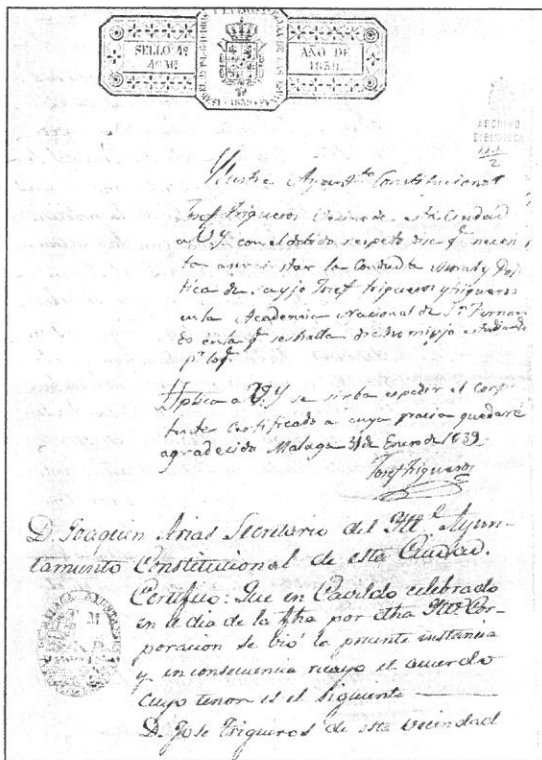 SELLO 4º
40 Ms
AÑO DE
1839.
ARCHIVO
BIBLIOTECA
2
Illustre Ayuntto Constitucional
Josef Trigueros Vecino de esta Ciudad
a V.Y. con el debido respeto dice qe necesi
ta acreditar la Conducta Moral y Poli
tica de su yjo Josef trigueros y trigueros
en la Academia Nacional de Sn Fernan
do en la qe se halla dicho mi yjo estudiando
pr lo qe
Suplica a V.Y. se sirba espedir el
Certificado a cuya gracia quedaré
agradecido Malaga 31 de Enero de 1839.
Josef Trigueros
D. Joaquin Arias Secretario del Ille Ayun-
tamiento Constitucional de esta Ciudad.
Certifico: Que en Cavildo celebrado
en el dia de la fha por dha Ille Cor-
poracion se vió la presente instancia
y en consecuencia recayo el acuerdo
cuyo tenor es el siguiente
D. Jose Trigueros de esta vecindad